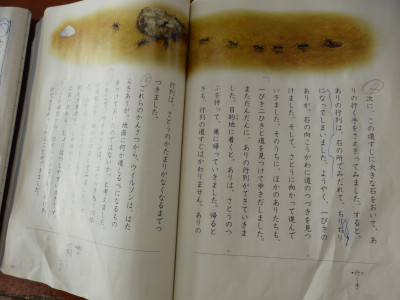 次に、この道すじに大きな石をおいて、あ
りの行く手をさえぎってみました。すると、
ありの行列は、石の所でみだれて、ちりぢり
になってしまいました。ようやく、一ぴきの
ありが、石の向こうがわに道のつづきを見つ
けました。そして、さとうに向かって進んで
いきました。そのうちに、ほかのありたちも、
一ぴき二ひきと道を見つけて歩きだしました。
まただんだんに、ありの行列ができていきま
した。目的地に着くと、ありは、さとうのつ
ぶを持って、巣に帰っていきました。帰ると
きも、行列の道すじはかわりません。ありの
・行く手
行列は、さとうのかたまりがなくなるまでつ
づきました。
これらのかんさつから、ウイルソンは、はた
らきありが、地面に何か道しるべになるもの
をつけておいたのではないか、と考えました。